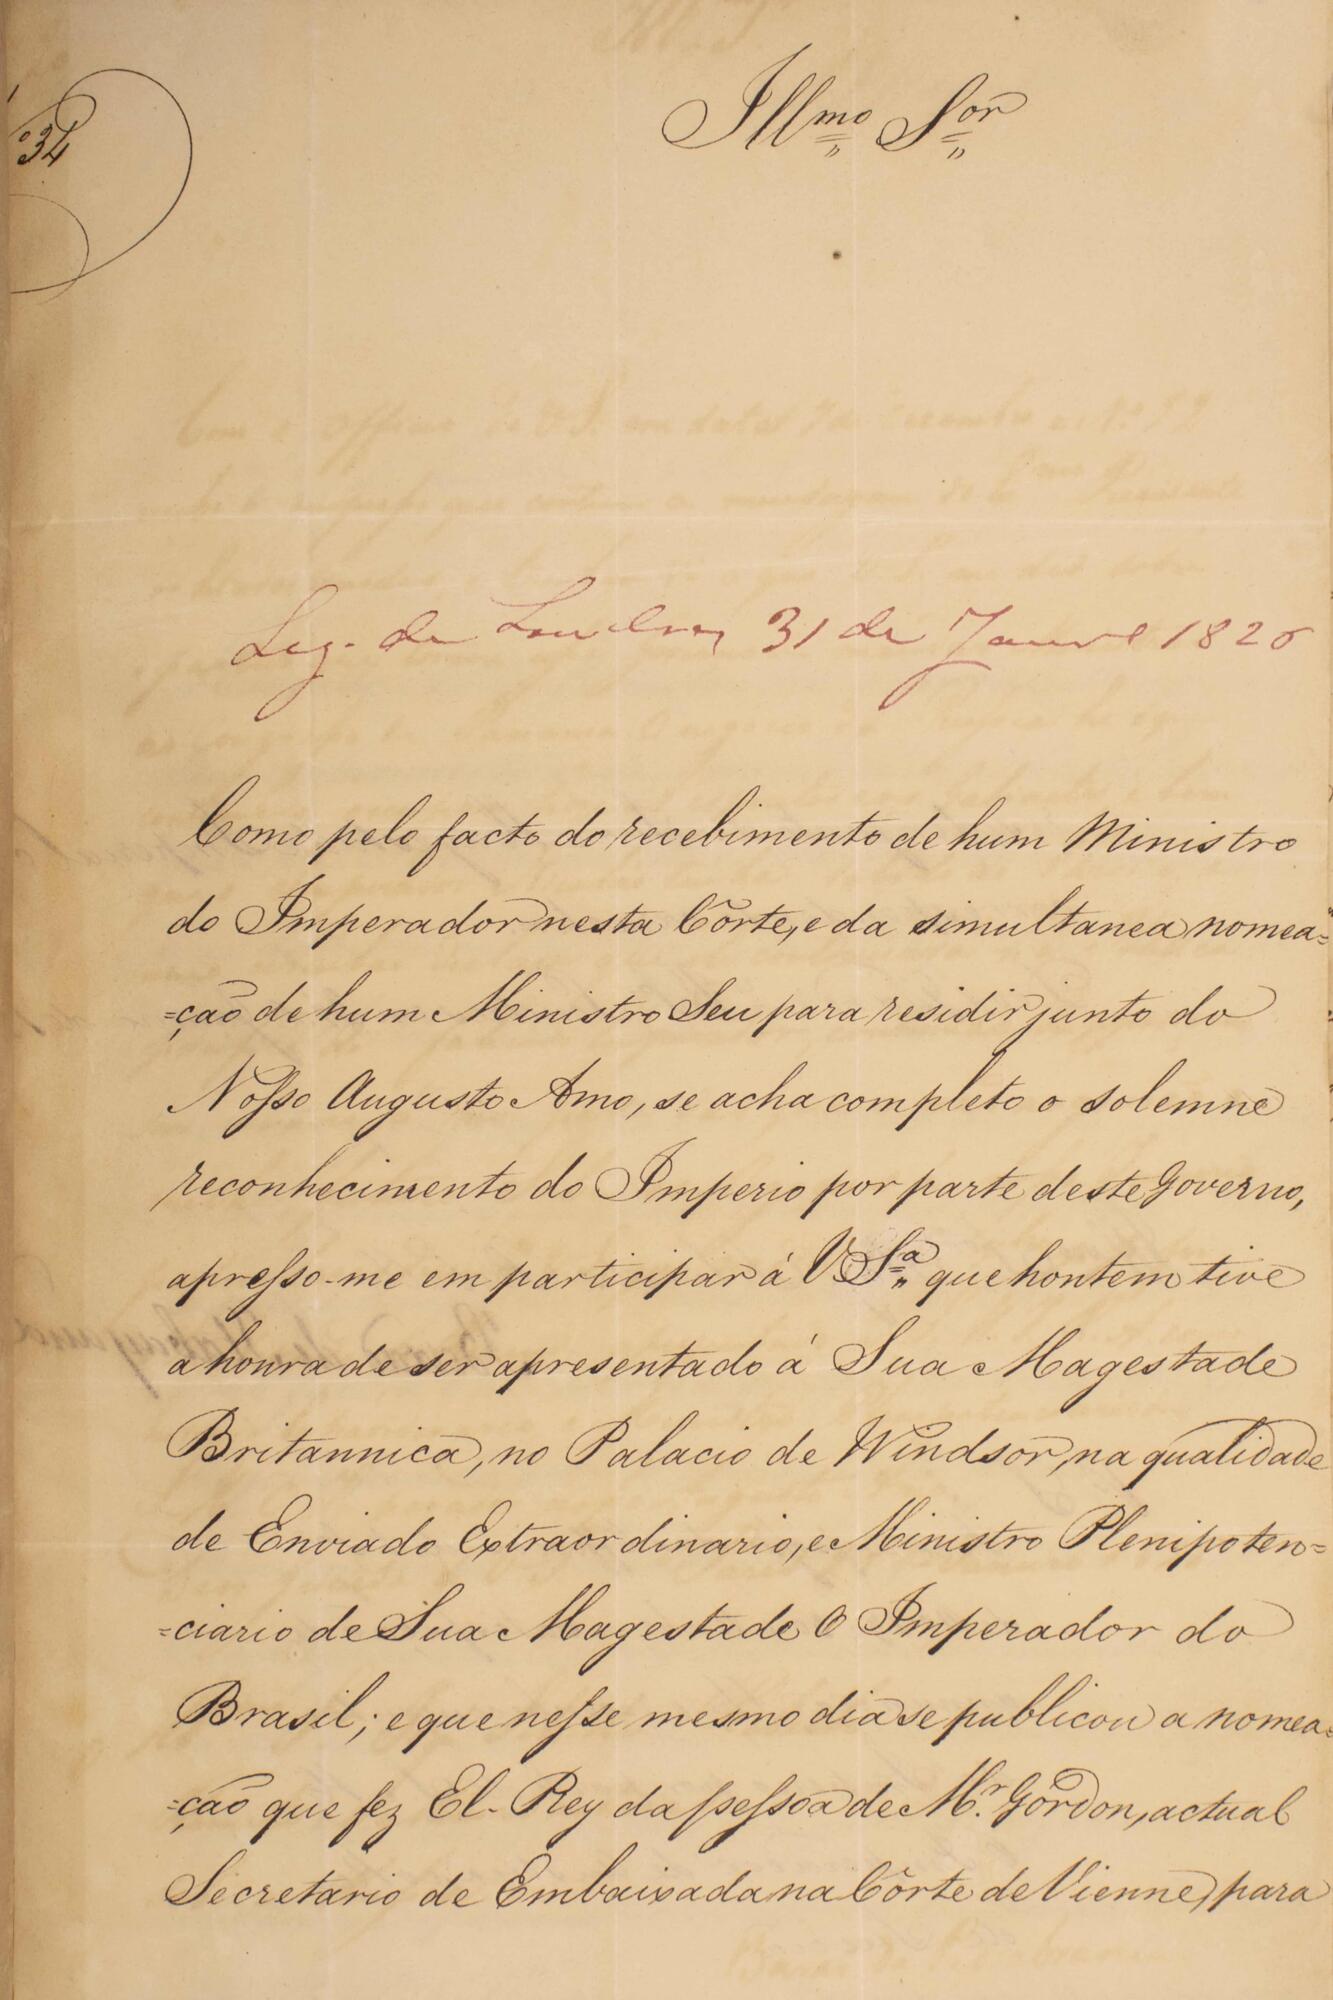 34
Illmo Sor
Leg. de Londres 31 de Janro 1826
Como pelo facto do recebimento de hum Ministro
do Imperador nesta Côrte, e da simultanea nomea=
=ção de hum Ministro Seu para residir junto do
Nosso Augusto Amo, se acha completo o solemne
reconhecimento do Imperio por parte deste Governo,
apresso-me em participar á V Sa que hontem tive
a honra de ser apresentado á Sua Magestade
Britannica, no Palacio de Windsor, na qualidade
de Enviado Extraordinario, e Ministro Plenipoten=
=ciario de Sua Magestade O Imperador do
Brasil; e que nesse mesmo dia se publicou a nomea=
=ção que fez El-Rey da pessoa de Mr. Gordon, actual
Secretario de Embaixada na Côrte de Vienne, para